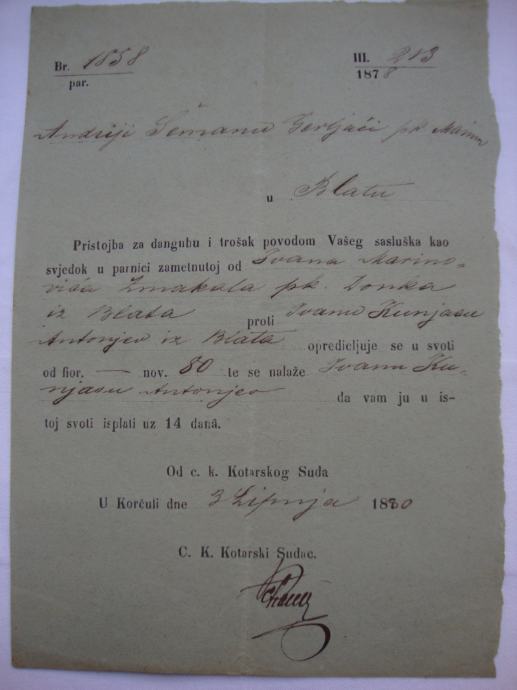 Br. 1858
par.
III. 213
1878
Andriji Šemanu Gerljači pk. Marina
u Blatu
Pristojba za dangubu i trošak povodom Vašeg sasluška kao
svjedok u parnici zametnutoj od Ivana Marino-
vića Zmakala pk. Donka
iz Blata proti Ivanu Kunjasu
Antonjev iz Blata opredicljuje se u svoti
od fior. — nov. 80 te se nalaže Ivanu Ku-
njasu Antonjev da vam ju u is-
toj svoti isplati uz 14 danâ.
Od c. k. Kotarskog Suda
U Korčuli dne 3 Lipnja 1880
C. K. Kotarski Sudac.